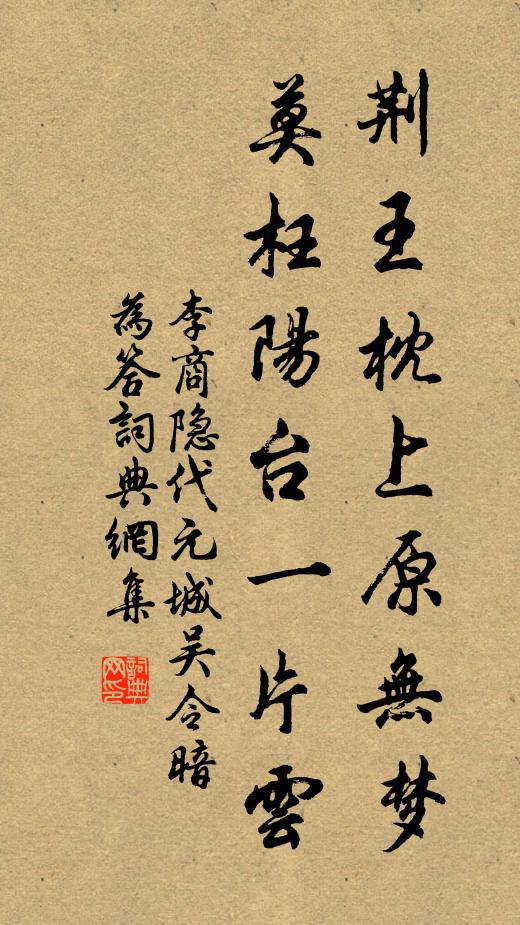 荆王枕上原無梦
莫枉陽台一片雲
李商隐代元城吴令暗
為答詞典網集
詞典网印